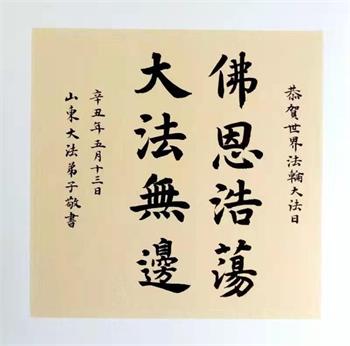 恭賀世界法輪大法日
佛恩浩蕩
大法無邊
辛丑年五月十三日
山東大法弟子敬書